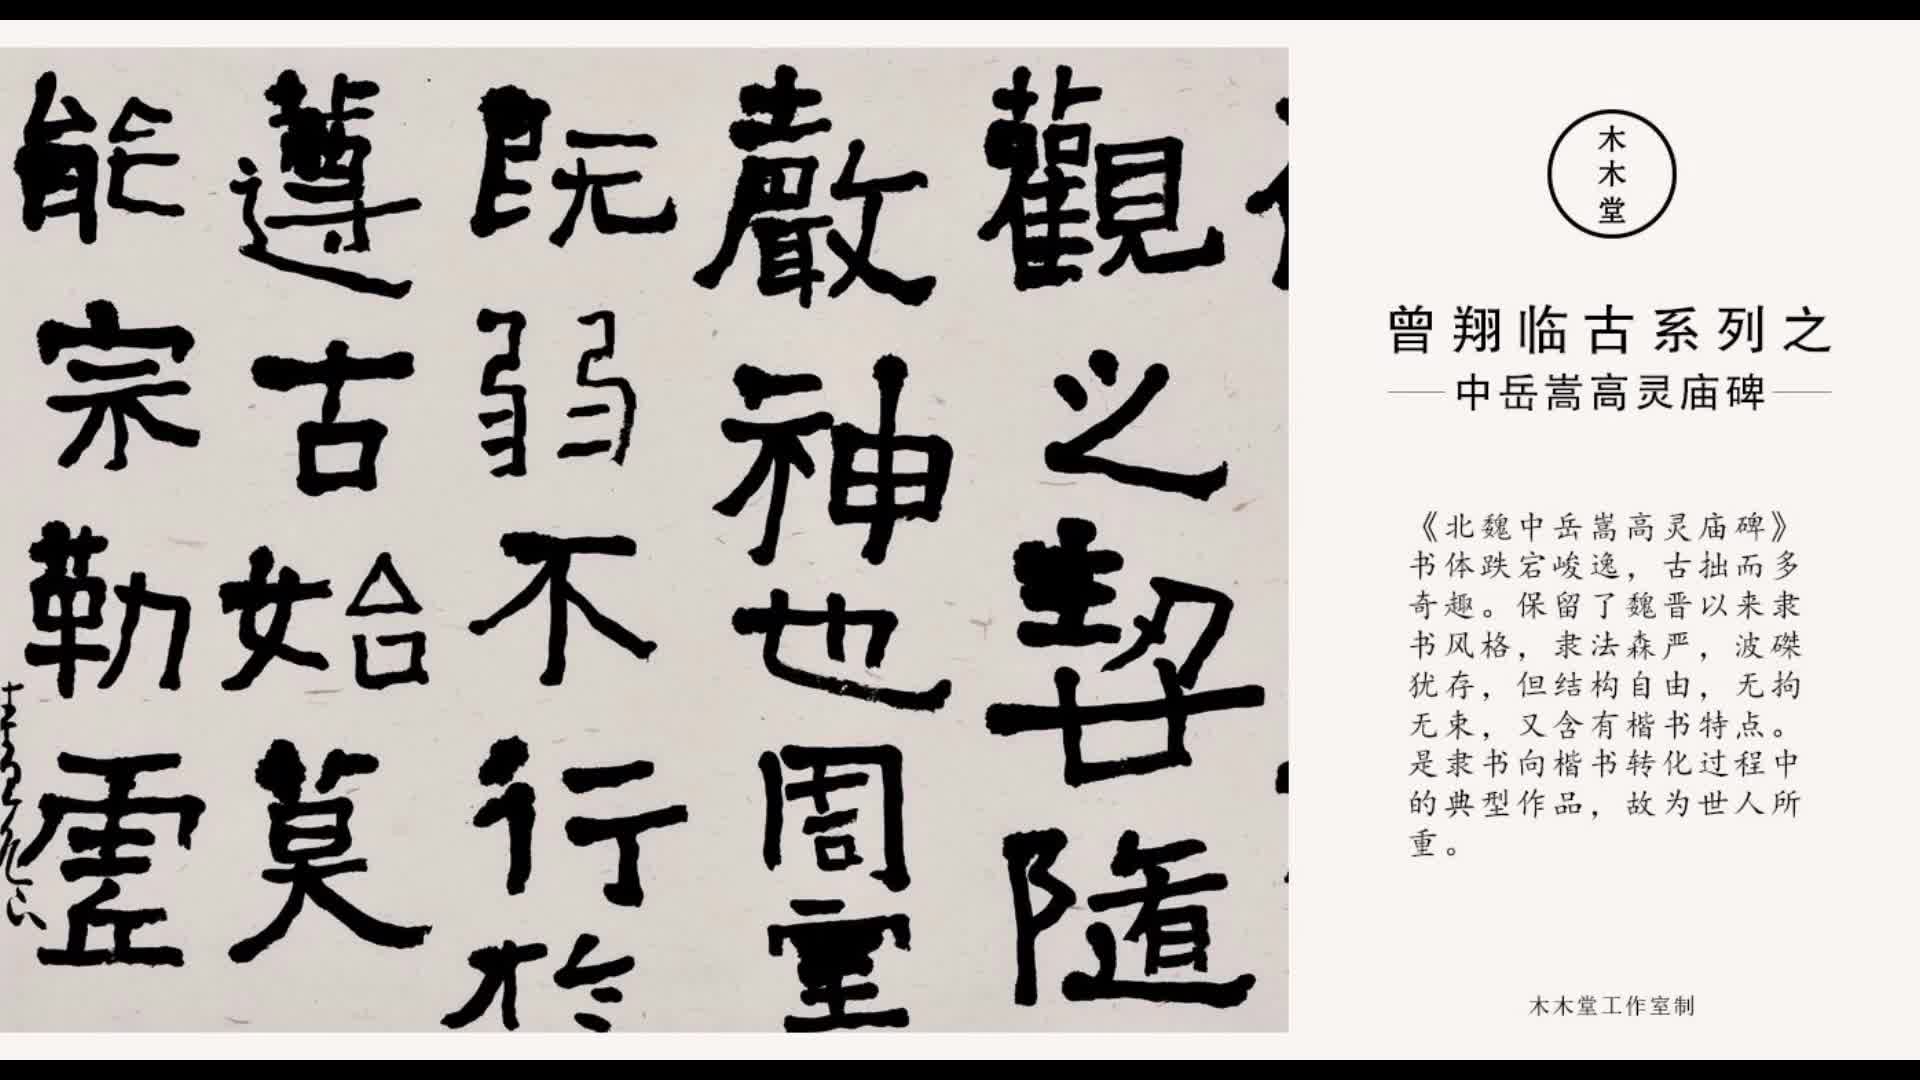 觀之契隨
嚴神也周室
既弱不行於
遵古始莫
能宗勒虚
木木堂
曾翔临古系列之
中岳嵩高灵庙碑
《北魏中岳嵩高灵庙碑》
书体跌宕峻逸，古拙而多
奇趣。保留了魏晋以来隶
书风格，隶法森严，波磔
犹存，但结构自由，无拘
无束，又含有楷书特点。
是隶书向楷书转化过程中
的典型作品，故为世人所
重。
木木堂工作室制